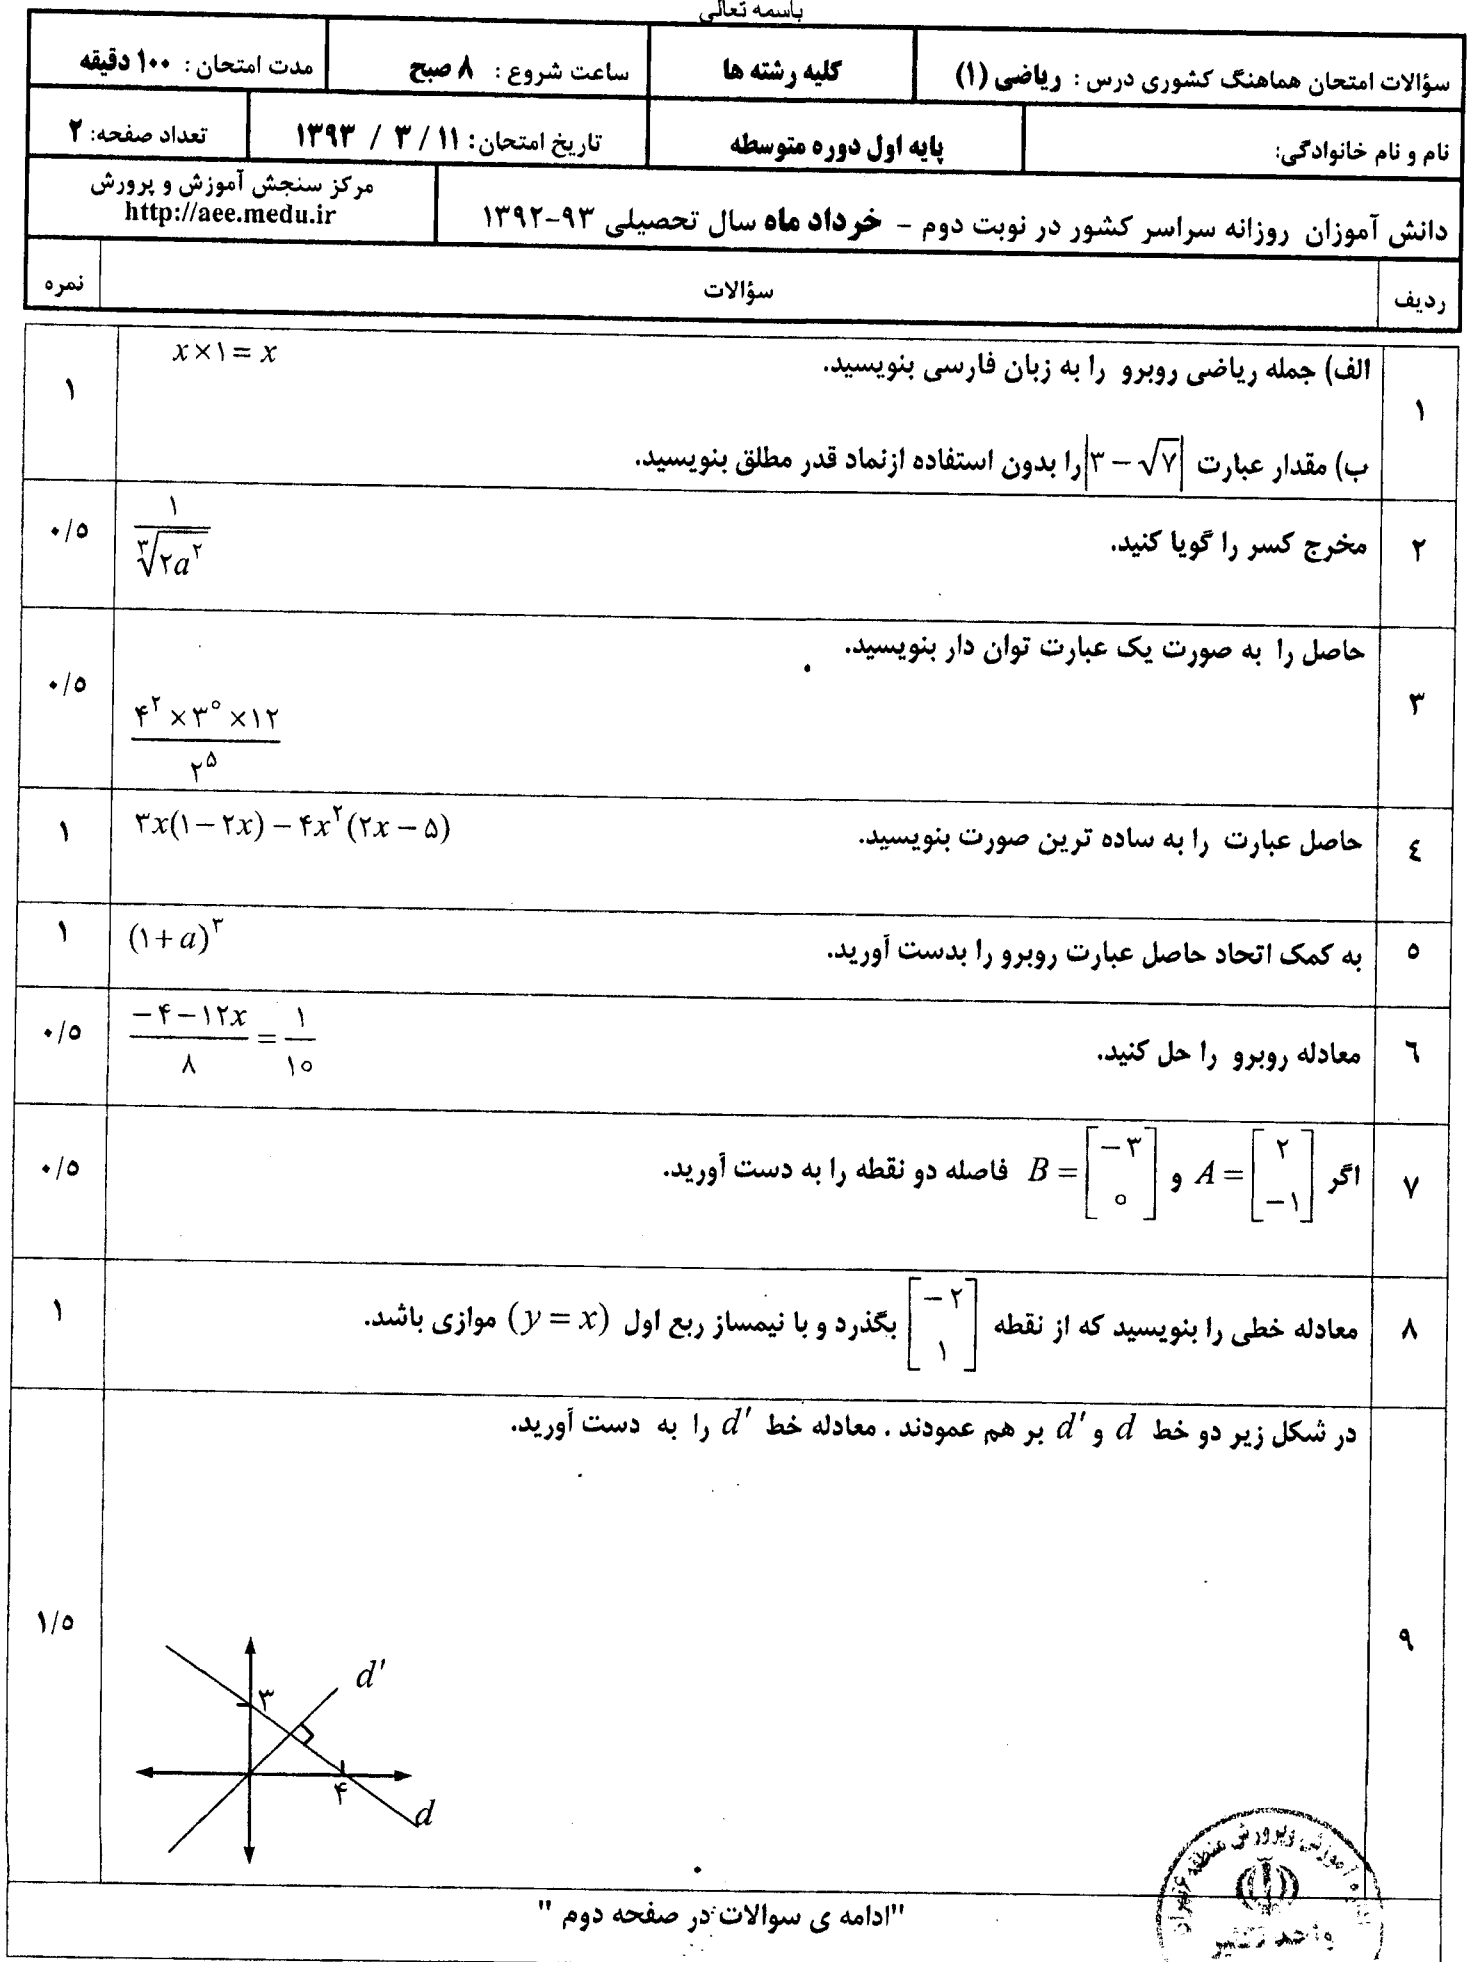 باسمه تعالی
سؤالات امتحان هماهنگ کشوری درس : ریاضی (۱) کلیه رشته ها ساعت شروع : ۸ صبح مدت امتحان : ۱۰۰ دقیقه
نام و نام خانوادگی: پایه اول دوره متوسطه تاریخ امتحان: ۱۱ / ۳ / ۱۳۹۳ تعداد صفحه: ۲
دانش آموزان روزانه سراسر کشور در نوبت دوم - خرداد ماه سال تحصیلی ۹۳-۱۳۹۲ مرکز سنجش آموزش و پرورش
http://aee.medu.ir
ردیف سؤالات نمره
۱ الف) جمله ریاضی روبرو را به زبان فارسی بنویسید. x×۱= x ۱
ب) مقدار عبارت |۳ − √۷| را بدون استفاده ازنماد قدر مطلق بنویسید.
۲ مخرج کسر را گویا کنید. ۱/∛(۲a^۲) ۰/۵
۳ حاصل را به صورت یک عبارت توان دار بنویسید. ۰/۵
(۴^۲ ×۳^۰ ×۱۲)/۲^۵
٤ حاصل عبارت را به ساده ترین صورت بنویسید. ۳x(۱−۲x)−۴x^۲(۲x−۵) ۱
٥ به کمک اتحاد حاصل عبارت روبرو را بدست آورید. (۱+a)^۳ ۱
٦ معادله روبرو را حل کنید. (−۴−۱۲x)/۸ = ۱/۱۰ ۰/۵
۷ اگر A = [۲ −۱] و B = [−۳ ۰] فاصله دو نقطه را به دست آورید. ۰/۵
۸ معادله خطی را بنویسید که از نقطه [−۲ ۱] بگذرد و با نیمساز ربع اول (y = x) موازی باشد. ۱
۹ در شکل زیر دو خط d و d' بر هم عمودند . معادله خط d' را به دست آورید. ۱/۵
d'
۳
۴
d
"ادامه ی سوالات در صفحه دوم "
اداره آموزش وپرورش منطقه ۶ تهران
واحد تکثیر